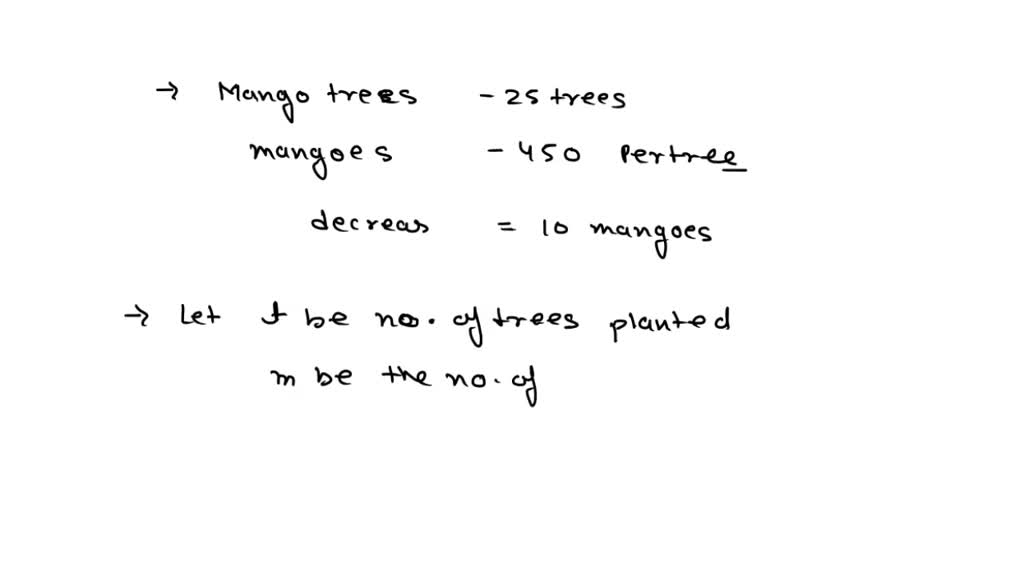 → Mango trees - 25 trees
mangoes - 450 Pertree
decreas = 10 mangoes
→ Let t be no. of trees planted
m be the no. of